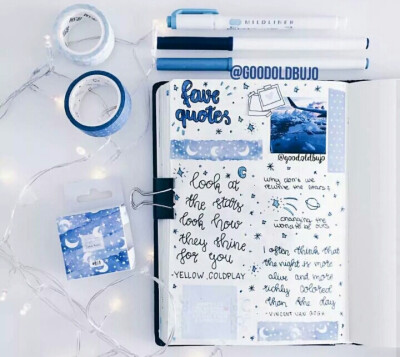 MILDLINER
@GOODOLDBUJO
fave
quotes
@goodoldbujo
look at
the stars
look how
they shine
for you
-YELLOW, COLDPLAY
why don't we
rewrite the stars?
changing the
world is ours
I often think that
the night is more
alive and more
richly colored
than the day
-VINCENT VAN GOGH